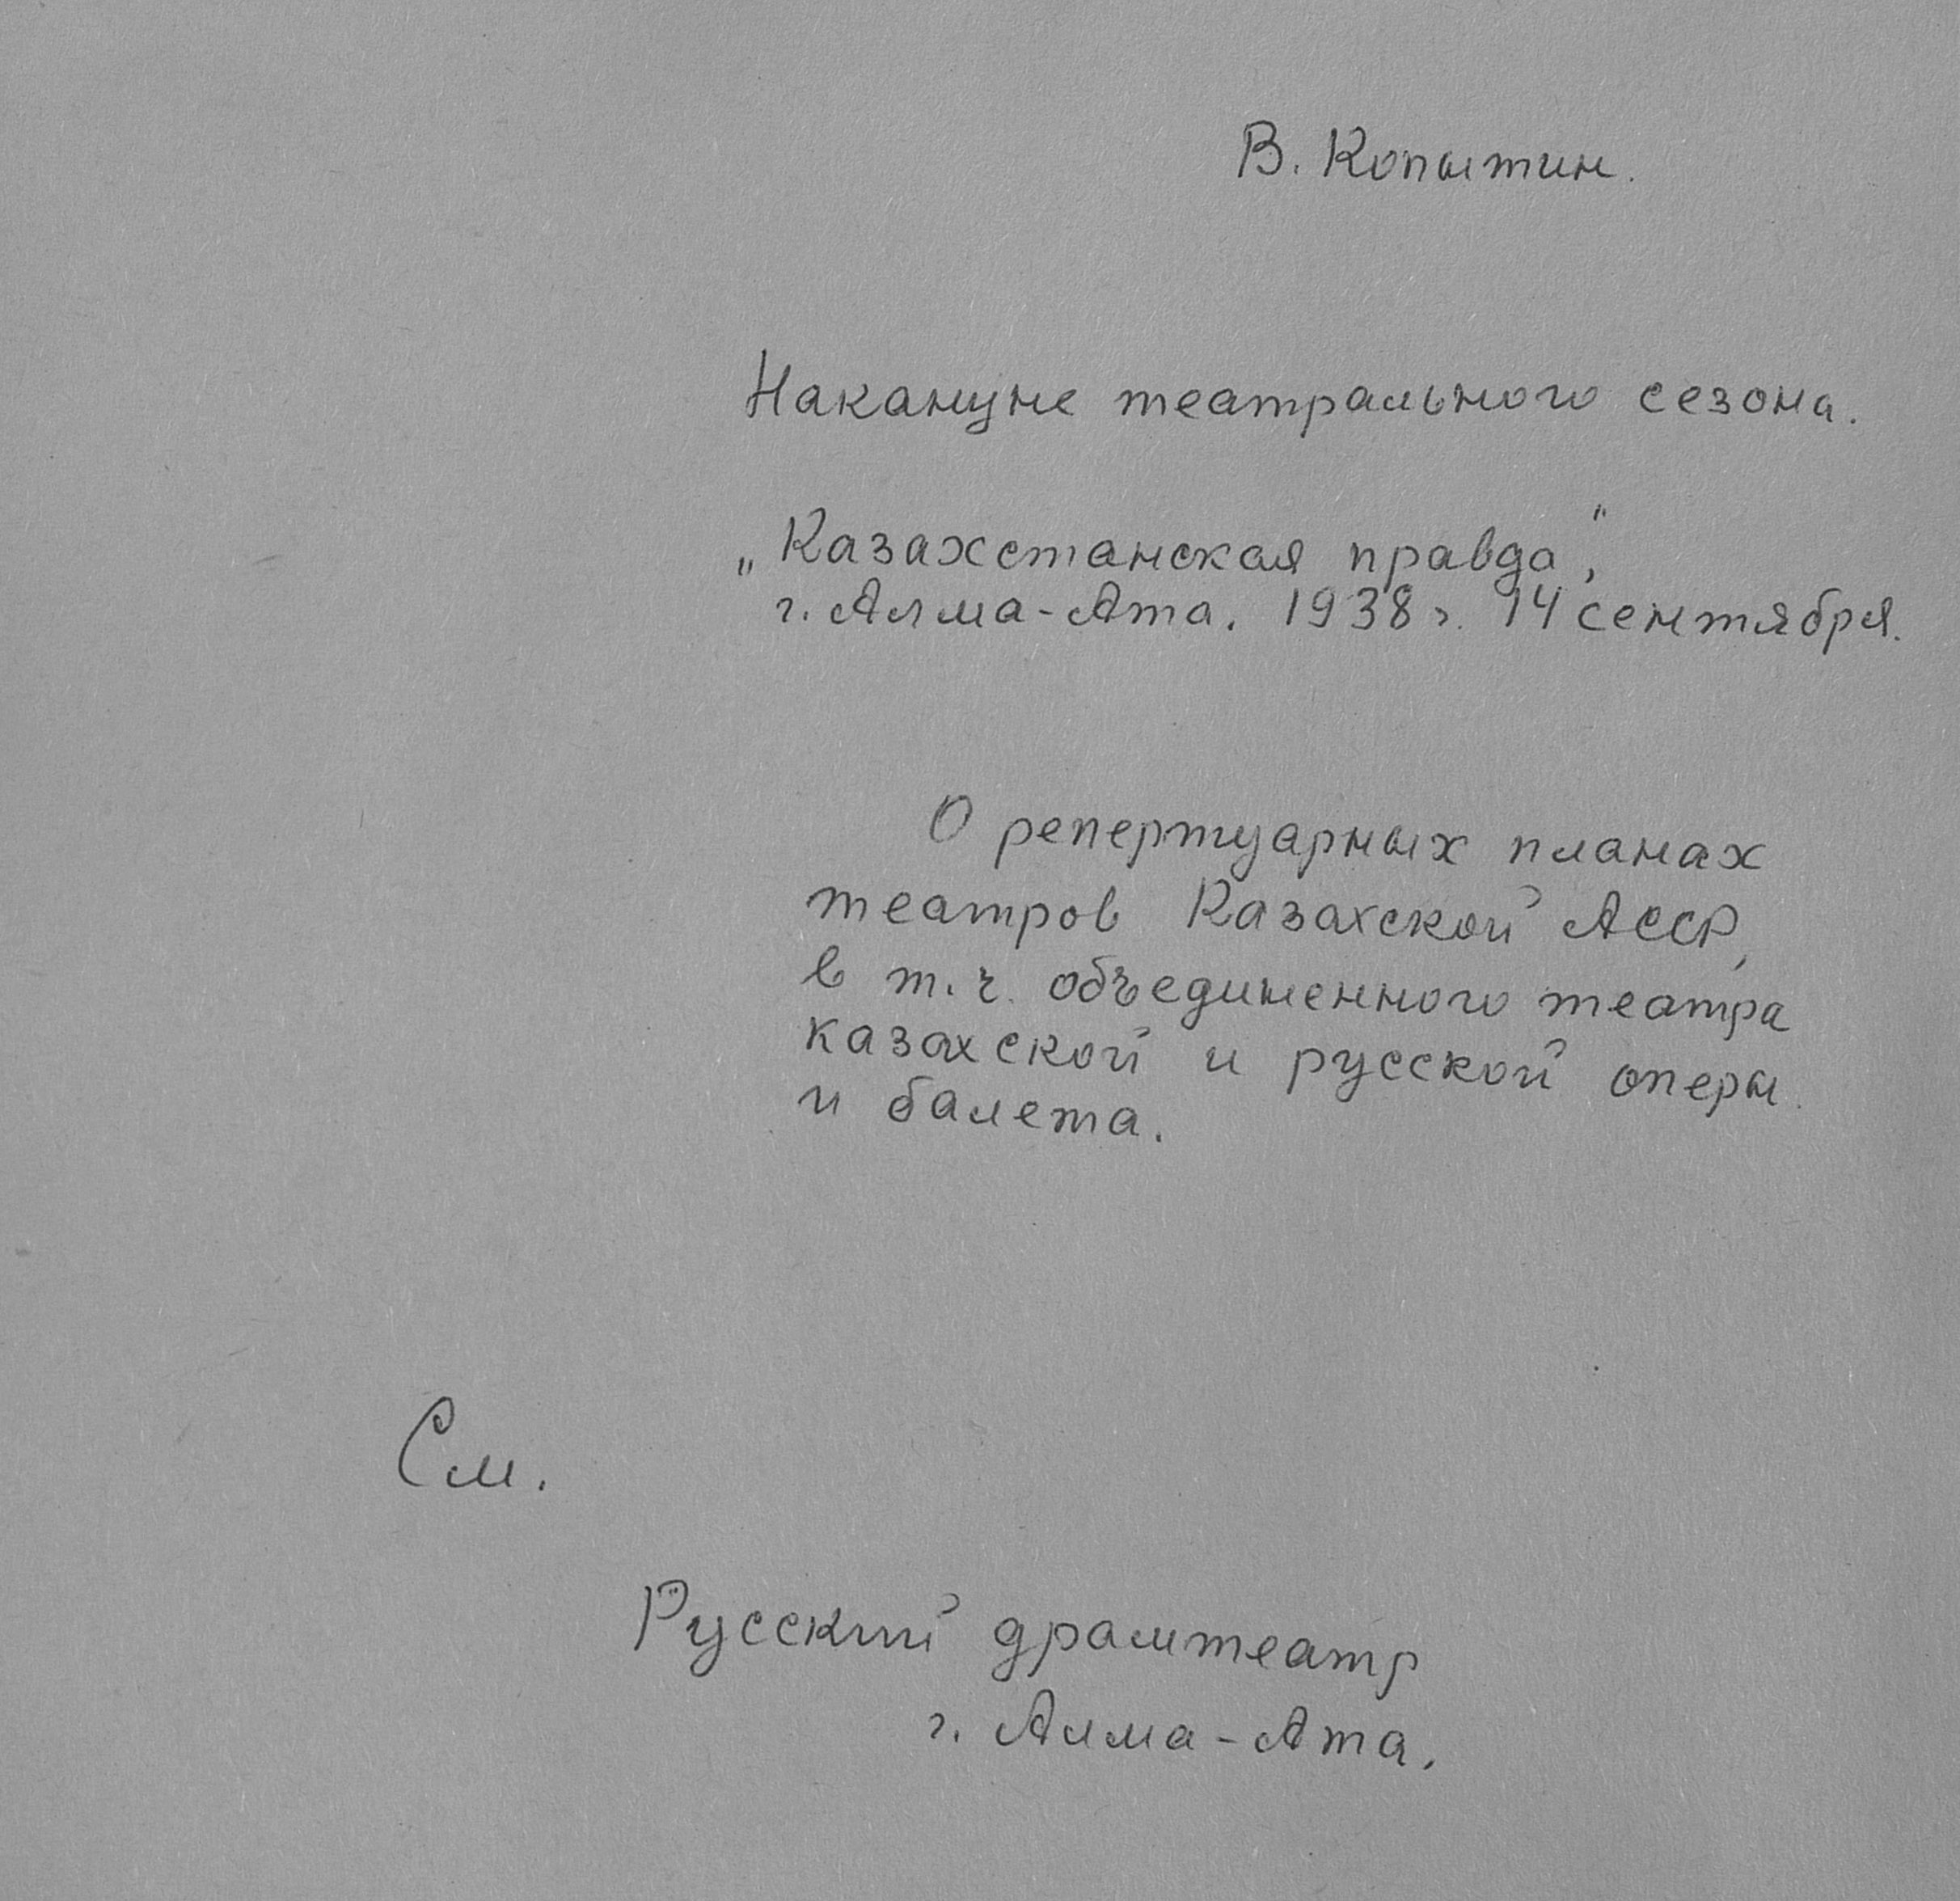 В. Копытин.
Накануне театрального сезона.
„Казахстанская правда",
г. Алма-Ата. 1938 г. 14 сентября.
О репертуарных планах
театров Казахской АССР,
в т.ч. объединенного театра
казахской и русской оперы
и балета.
См.
Русский драмтеатр
г. Алма-Ата.